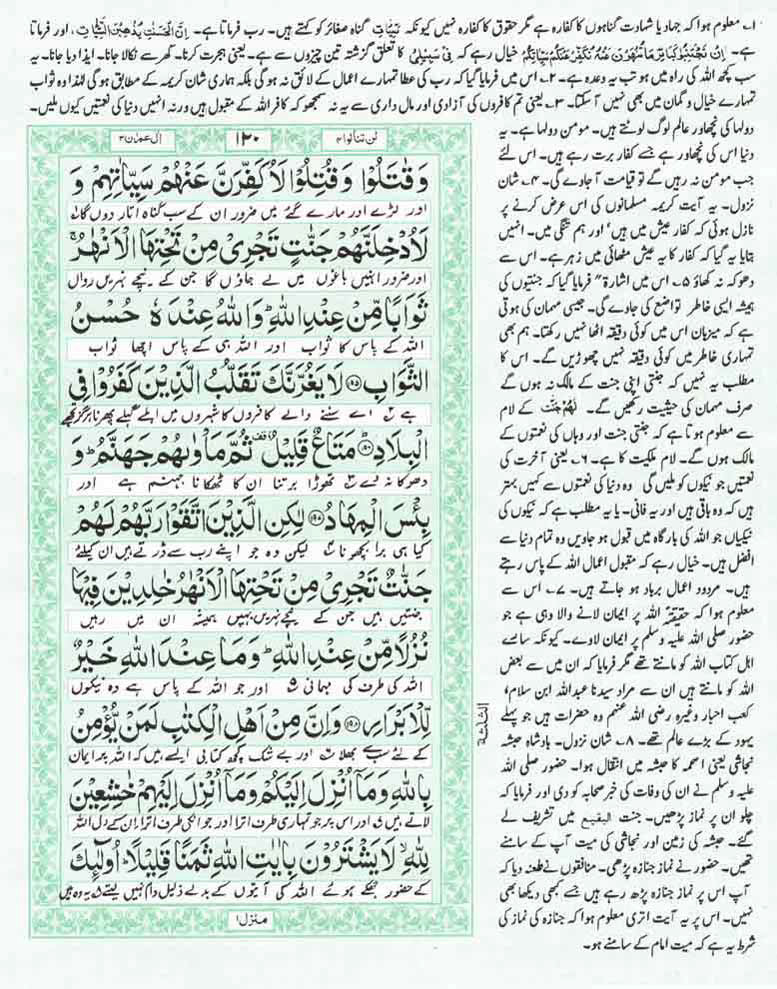 ۱۔ معلوم ہوا کہ جہاد یا شہادت گناہوں کا کفارہ ہے مگر حقوق کا کفارہ نہیں کیونکہ سَیِّاٰت گناہ صغائر کو کہتے ہیں۔ رب فرماتا ہے۔ اِنَّ الْحَسَنٰتِ یُذْهِبْنَ السَّیِّاٰتِ، اور فرماتا
ہے۔ اِنْ تَجْتَنِبُوْا كَبَآىِٕرَ مَا تُنْهَوْنَ عَنْهُ نُكَفِّرْ عَنْكُمْ سَیِّاٰتِكُمْ خیال رہے کہ فِیْ سَبِیْلِیْ کا تعلق گزشتہ تین چیزوں سے ہے۔ یعنی ہجرت کرنا۔ گھر سے نکالا جانا۔ ایذا دیا جانا۔ یہ
سب کچھ اللہ کی راہ میں ہو تب یہ وعدہ ہے۔ ۲۔ اس میں فرمایا گیا کہ رب کی عطا تمہارے اعمال کے لائق نہ ہو گی بلکہ ہماری شان کریمہ کے مطابق ہو گی لہٰذا وہ ثواب
تمہارے خیال و گمان میں بھی نہیں آ سکتا۔ ۳۔ یعنی تم کافروں کی آزادی اور مال داری سے یہ نہ سمجھو کہ کافر اللہ کے مقبول ہیں ورنہ انہیں دنیا کی نعمتیں کیوں ملیں۔
دولہا کی نچھاور عالم لوگ لوٹتے ہیں۔ مومن دولہا ہے۔ یہ
دنیا اس کی نچھاور ہے جسے کفار برت رہے ہیں۔ اس لئے
جب مومن نہ رہیں گے تو قیامت آ جاوے گی۔ ۴۔ شان
نزول۔ یہ آیت کریمہ مسلمانوں کی اس عرض کرنے پر
نازل ہوئی کہ کفار عیش میں ہیں اور ہم تنگی میں۔ انہیں
بتایا یہ گیا کہ کفار کا یہ عیش مٹھائی میں زہر ہے۔ اس سے
دھوکہ نہ کھاؤ ۵۔ اس میں اشارۃً فرمایا گیا کہ جنتیوں کی
ہمیشہ ایسی خاطر تواضع کی جاوے گی۔ جیسی مہمان کی ہوتی
ہے کہ میزبان اس میں کوئی دقیقہ اٹھا نہیں رکھتا۔ ہم بھی
تمہاری خاطر میں کوئی دقیقہ نہیں چھوڑیں گے۔ اس کا
مطلب یہ نہیں کہ جنتی اپنی جنت کے مالک نہ ہوں گے
صرف مہمان کی حیثیت رکھیں گے۔ لَهُمْ جَنّٰت کے لام
سے معلوم ہوتا ہے کہ جنتی جنت اور وہاں کی نعمتوں کے
مالک ہوں گے۔ لام ملکیت کا ہے۔ ۶۔ یعنی آخرت کی
نعمتیں جو نیکوں کو ملیں گی وہ دنیا کی نعمتوں سے کہیں بہتر
ہیں کہ وہ باقی ہیں اور یہ فانی۔ یا یہ مطلب ہے کہ نیکوں کی
نیکیاں جو اللہ کی بارگاہ میں قبول ہو جاویں وہ تمام دنیا سے
افضل ہیں۔ خیال رہے کہ مقبول اعمال اللہ کے پاس رہتے
ہیں۔ مردود اعمال برباد ہو جاتے ہیں۔ ۷۔ اس سے
معلوم ہوا کہ حقیقۃً اللہ پر ایمان لانے والا وہی ہے جو
حضور صلی اللہ علیہ وسلم پر ایمان لاوے۔ کیونکہ سارے
اہل کتاب اللہ کو مانتے تھے مگر فرمایا کہ ان میں سے بعض
اللہ کو مانتے ہیں ان سے مراد سیدنا عبداللہ ابن سلام،
کعب احبار وغیرہ رضی اللہ عنہم وہ حضرات ہیں جو پہلے
یہود کے بڑے عالم تھے۔ ۸۔ شان نزول۔ بادشاہ حبشہ
نجاشی یعنی اصحمہ کا حبشہ میں انتقال ہوا۔ حضور صلی اللہ
علیہ وسلم نے ان کی وفات کی خبر صحابہ کو دی اور فرمایا کہ
چلو ان پر نماز پڑھیں۔ جنت البقیع میں تشریف لے
گئے۔ حبشہ کی زمین اور نجاشی کی میت آپ کے سامنے
تھیں۔ حضور نے نماز جنازہ پڑھی۔ منافقوں نے طعنہ دیا کہ
آپ اس پر نماز جنازہ پڑھ رہے ہیں جسے کبھی دیکھا بھی
نہیں۔ اس پر یہ آیت اتری معلوم ہوا کہ جنازہ کی نماز کی
شرط یہ ہے کہ میت امام کے سامنے ہو۔
لن تنالوا۴ ۱۲۰ اٰل عمران۳
وَ قٰتَلُوْا وَ قُتِلُوْا لَاُكَفِّرَنَّ عَنْهُمْ سَیِّاٰتِهِمْ وَ
اور لڑے اور مارے گئے میں ضرور ان کے سب گناہ اتار دوں گا اور
لَاُدْخِلَنَّهُمْ جَنّٰتٍ تَجْرِیْ مِنْ تَحْتِهَا الْاَنْهٰرُ
اور ضرور انہیں باغوں میں لے جاؤں گا جن کے نیچے نہریں رواں
ثَوَابًا مِّنْ عِنْدِ اللّٰهِ وَ اللّٰهُ عِنْدَهٗ حُسْنُ
اللہ کے پاس کا ثواب اور اللہ ہی کے پاس اچھا ثواب
الثَّوَابِ لَا یَغُرَّنَّكَ تَقَلُّبُ الَّذِیْنَ كَفَرُوْا فِی
ہے اے سننے والے کافروں کا شہروں میں اہلے گہلے پھرنا ہرگز تجھے
الْبِلَادِ مَتَاعٌ قَلِیْلٌ ثُمَّ مَاْوٰىهُمْ جَهَنَّمُ وَ
دھوکا نہ دے تھوڑا برتنا ان کا ٹھکانا جہنم ہے اور
بِئْسَ الْمِهَادُ لٰكِنِ الَّذِیْنَ اتَّقَوْا رَبَّهُمْ لَهُمْ
کیا ہی برا بچھونا لیکن وہ جو اپنے رب سے ڈرتے ہیں ان کیلئے
جَنّٰتٌ تَجْرِیْ مِنْ تَحْتِهَا الْاَنْهٰرُ خٰلِدِیْنَ فِیْهَا
جنتیں ہیں جن کے نیچے نہریں بہیں ہمیشہ ان میں رہیں
نُزُلًا مِّنْ عِنْدِ اللّٰهِ وَ مَا عِنْدَ اللّٰهِ خَیْرٌ
اللہ کی طرف کی مہمانی اور جو اللہ کے پاس ہے وہ نیکوں
لِّلْاَبْرَارِ وَ اِنَّ مِنْ اَهْلِ الْكِتٰبِ لَمَنْ یُّؤْمِنُ
کے لئے سب سے بھلا اور بے شک کچھ کتابی ایسے ہیں کہ اللہ پر ایمان
بِاللّٰهِ وَ مَاۤ اُنْزِلَ اِلَیْكُمْ وَ مَاۤ اُنْزِلَ اِلَیْهِمْ خٰشِعِیْنَ
لاتے ہیں اور اس پر جو تمہاری طرف اترا اور جو انکی طرف اترا ان کے دل اللہ
لِلّٰهِ لَا یَشْتَرُوْنَ بِاٰیٰتِ اللّٰهِ ثَمَنًا قَلِیْلًا اُولٰٓىِٕكَ
کے حضور جھکے ہوئے اللہ کی آیتوں کے بدلے ذلیل دام نہیں لیتے یہ وہ ہیں
منزل۱
الثلٰثة